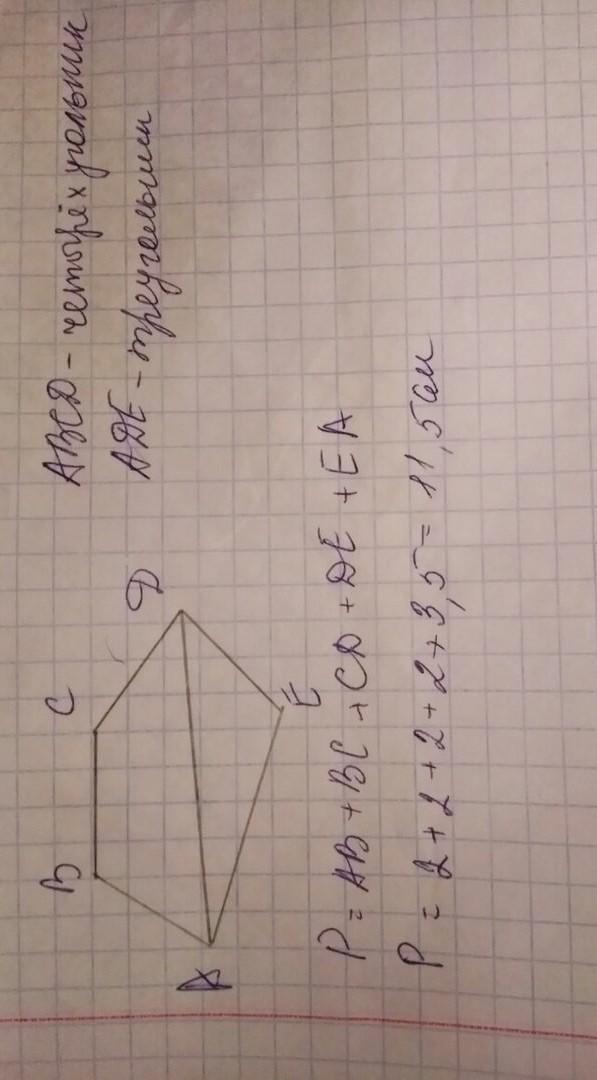 ABCD - четырёхугольник
ADE - треугольник
B
C
D
A
E
P = AB + BC + CD + DE + EA
P = 2 + 2 + 2 + 2 + 3,5 = 11,5 см